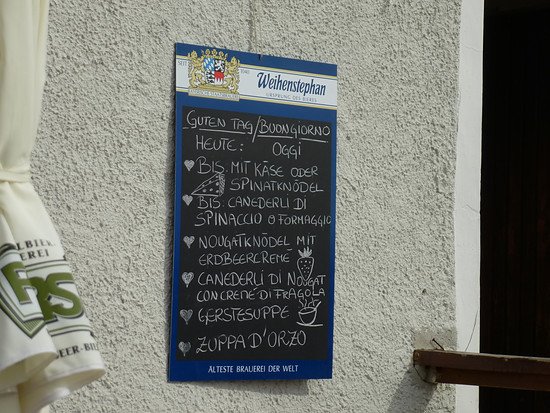 SEIT 1040
BAYERISCHE STAATSBRAUEREI
Weihenstephan
URSPRUNG DES BIERES
GUTEN TAG/BUONGIORNO
HEUTE: OGGI
BIS: MIT KÄSE ODER
SPINATKNÖDEL
BIS: CANEDERLI DI
SPINACCIO O FORMAGGIO
NOUGATKNÖDEL MIT
ERDBEERCREMÉ
CANEDERLI DI NOUGAT
CON CREME DI FRAGOLA
GERSTESUPPE
ZUPPA D'ORZO
ÄLTESTE BRAUEREI DER WELT